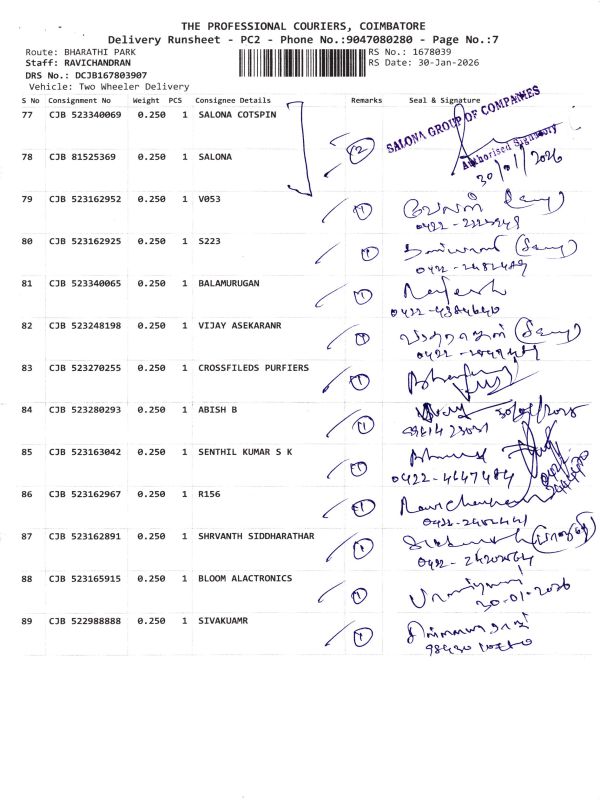 THE PROFESSIONAL COURIERS, COIMBATORE
Delivery Runsheet - PC2 - Phone No.:9047080280 - Page No.:7
Route: BHARATHI PARK
RS No.: 1678039
Staff: RAVICHANDRAN
RS Date: 30-Jan-2026
DRS No.: DCJB167803907
Vehicle: Two Wheeler Delivery
S No Consignment No Weight PCS Consignee Details Remarks Seal & Signature
77 CJB 523340069 0.250 1 SALONA COTSPIN
SALONA GROUP OF COMPANIES
Authorised Signatory
78 CJB 81525369 0.250 1 SALONA 2
30/01/2026
79 CJB 523162952 0.250 1 V053 1
80 CJB 523162925 0.250 1 S223 1
81 CJB 523340065 0.250 1 BALAMURUGAN 1 Rajesh
0422-4384640
82 CJB 523248198 0.250 1 VIJAY ASEKARANR 1
83 CJB 523270255 0.250 1 CROSSFILEDS PURFIERS 1
84 CJB 523280293 0.250 1 ABISH B 1
85 CJB 523163042 0.250 1 SENTHIL KUMAR S K 1
0422-4647484
86 CJB 523162967 0.250 1 R156 1
87 CJB 523162891 0.250 1 SHRVANTH SIDDHARATHAR 1
88 CJB 523165915 0.250 1 BLOOM ALACTRONICS 1
30-01-2026
89 CJB 522988888 0.250 1 SIVAKUAMR 1